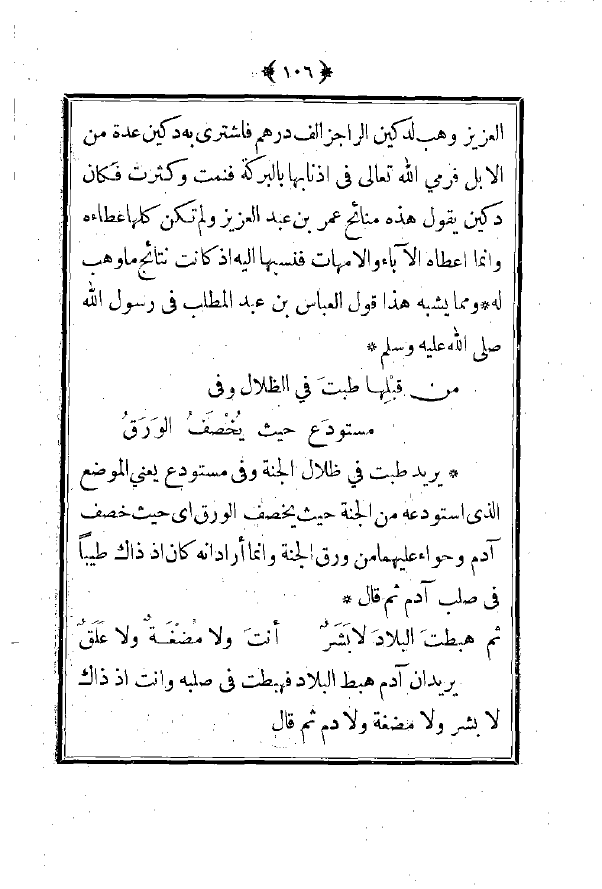 ﴿ ١٠٦ ﴾
العزيز وهب لدكين الراجز الف درهم فاشترى به دكين عدة من
الابل فرمي الله تعالى فى اذنابها بالبركة فنمت وكثرت فكان
دكين يقول هذه منائح عمر بن عبد العزيز ولم تكن كلها عطاءه
وانما اعطاه الآباء والامهات فنسبها اليه اذ كانت نتائج ما وهب
له * ومما يشبه هذا قول العباس بن عبد المطلب فى رسول الله
صلى الله عليه وسلم *
من قبْلِها طبتَ في الظلال وفى
مستودَع حيث يُخْصَفُ الوَرَقُ
* يريد طبت في ظلال الجنة وفى مستودع يعني الموضع
الذى استودعه من الجنة حيث يخصف الورق اى حيث خصف
آدم وحواء عليهما من ورق الجنة وانما أراد انه كان اذ ذاك طيباً
فى صلب آدم ثم قال *
ثم هبطتَ البلادَ لا بَشَرٌ أنتَ ولا مُضْغَةٌ ولا عَلَقٌ
يريد ان آدم هبط البلاد فهبطت فى صلبه وانت اذ ذاك
لا بشر ولا مضغة ولا دم ثم قال